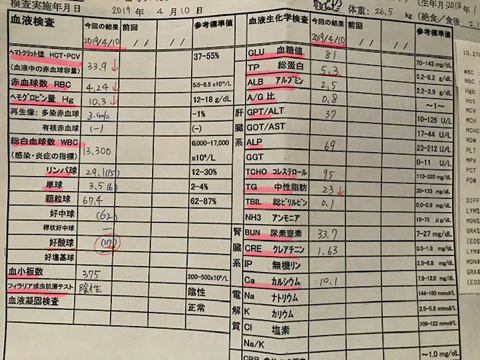 検査実施年月日 2019年 4月10日
体重: 26.5 kg (絶食/食後
(生年月日2018年
血液検査 今回の結果 前回 前回 参考標準値
2019/4/10
ヘマトクリット値 HCT・PCV
(血液中の赤血球容積) 33.9 ↓ 37-55%
赤血球数 RBC 4.24 ↓ 5.5-8.5 x10⁶/L
ヘモグロビン量 Hg 10.3 ↓ 12-18 g/dL
再生像・多染赤血球 -1%
有核赤血球 (-) (-)
総白血球数 WBC
(感染・炎症の指標) 13,300 6,000-17,000
x10⁶/L
リンパ球 29.1 12-30%
単球 3.5 2-4%
顆粒球 67.4 62-87%
好中球 (62)
桿状好中球 -
好酸球
好塩基球
血小板数 375 200-500x10⁹/L
フィラリア成虫抗原テスト 陰性 陰性
血液凝固検査 正常
血液生化学検査 今回の結果 前回 前回 参考標準値
(2019/4/10)
GLU 血糖値 81 70-143 mg/dL
TP 総蛋白 5.3 5.2-8.2 g/dL
ALB アルブミン 2.5 2.2-3.9 g/dL
A/G 比 0.8 ~1~
肝臓系
GPT/ALT 37 10-125 U/L
GOT/AST 17-44 U/L
ALP 69 23-212 U/L
GGT 0-11 U/L
TCHO コレステロール 95 110-320 mg/dL
TG 中性脂肪 23 ↓ 30-133 mg/dL
TBIL 総ビリルビン 0.1
NH3 アンモニア
腎臓系
BUN 尿素窒素 33.7 7-27 mg/dL
CRE クレアチニン 1.63 0.5-1.8 mg/dL
IP 無機リン
Ca カルシウム 10.1 7.9-12.0 mg/dL
電解質
Na ナトリウム 144-160 mmol/L
K カリウム 3.5-5.8 mmol/L
Cl 塩素 109-122 mmol/L
Na/K
~1.0 mg/dL